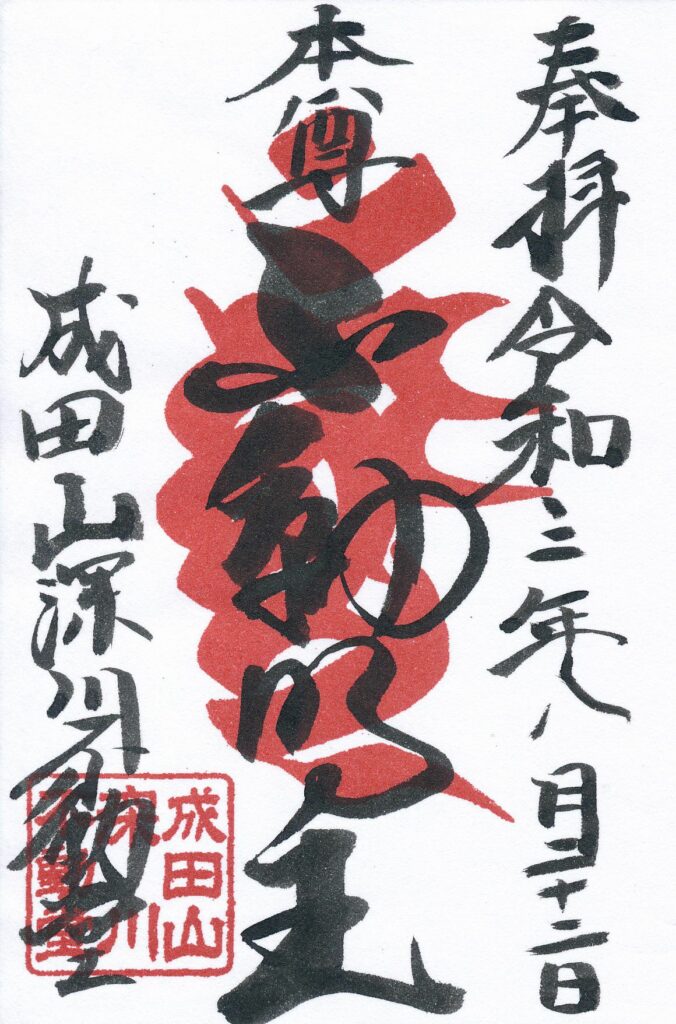 奉拝 令和三年八月二十二日
本尊 不動明王
成田山深川不動堂
成田山
深川
不動堂